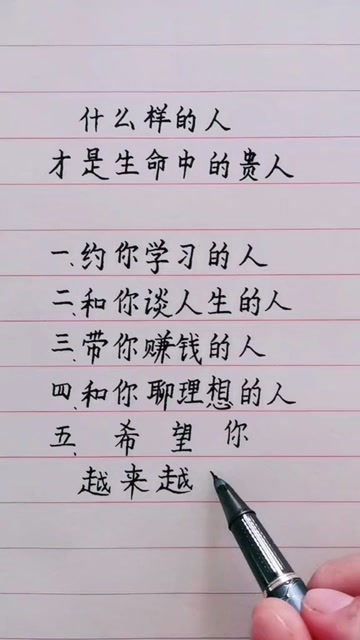 什么样的人
才是生命中的贵人
一、约你学习的人
二、和你谈人生的人
三、带你赚钱的人
四、和你聊理想的人
五、希望你
越来越